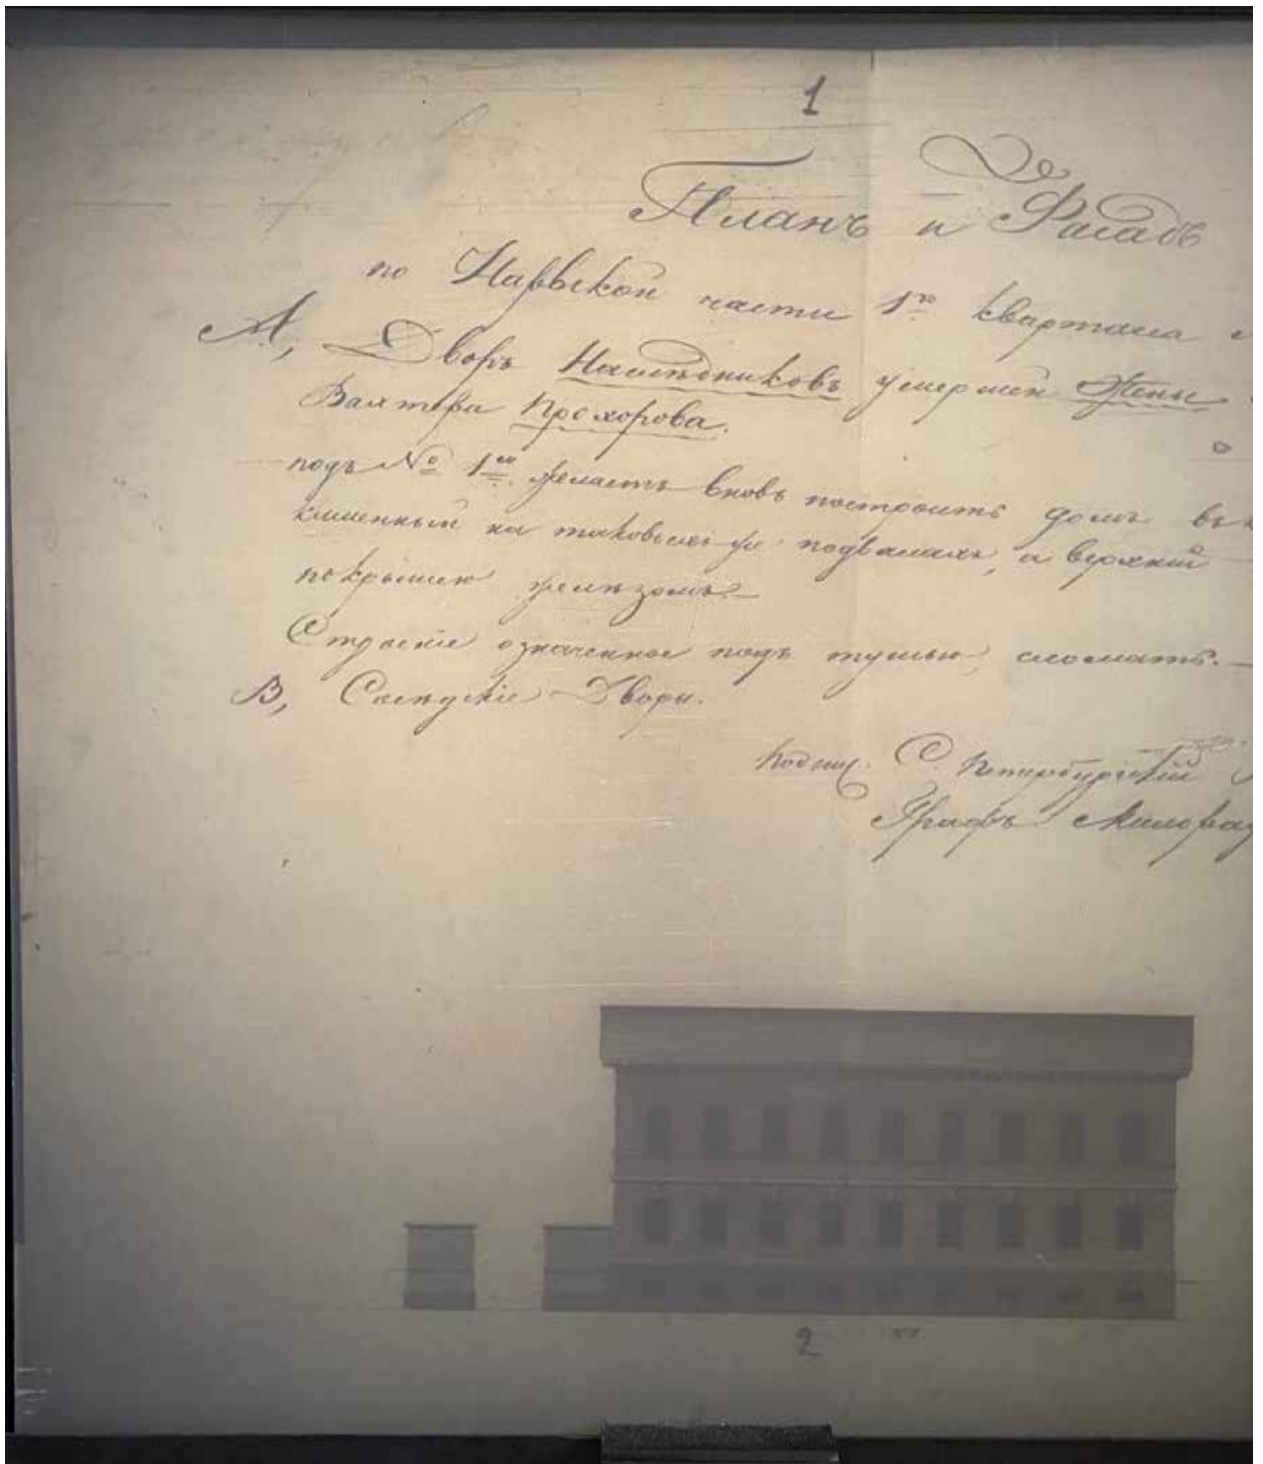 1
Планъ и Фасадъ
по Нарвской части 1го квартала
А, Дворъ Наслѣдниковъ умершей Жены
Вахтера Прохорова.
подъ № 1м желаетъ вновь построить домъ
каменный на таковыхъ же подвалахъ, а верхній
покрышею желѣзомъ.
Строеніе означенное подъ тушью, сломать.
В, Сосѣдскіе Дворы.
Подпис. С. Петербургскій
Графъ
2